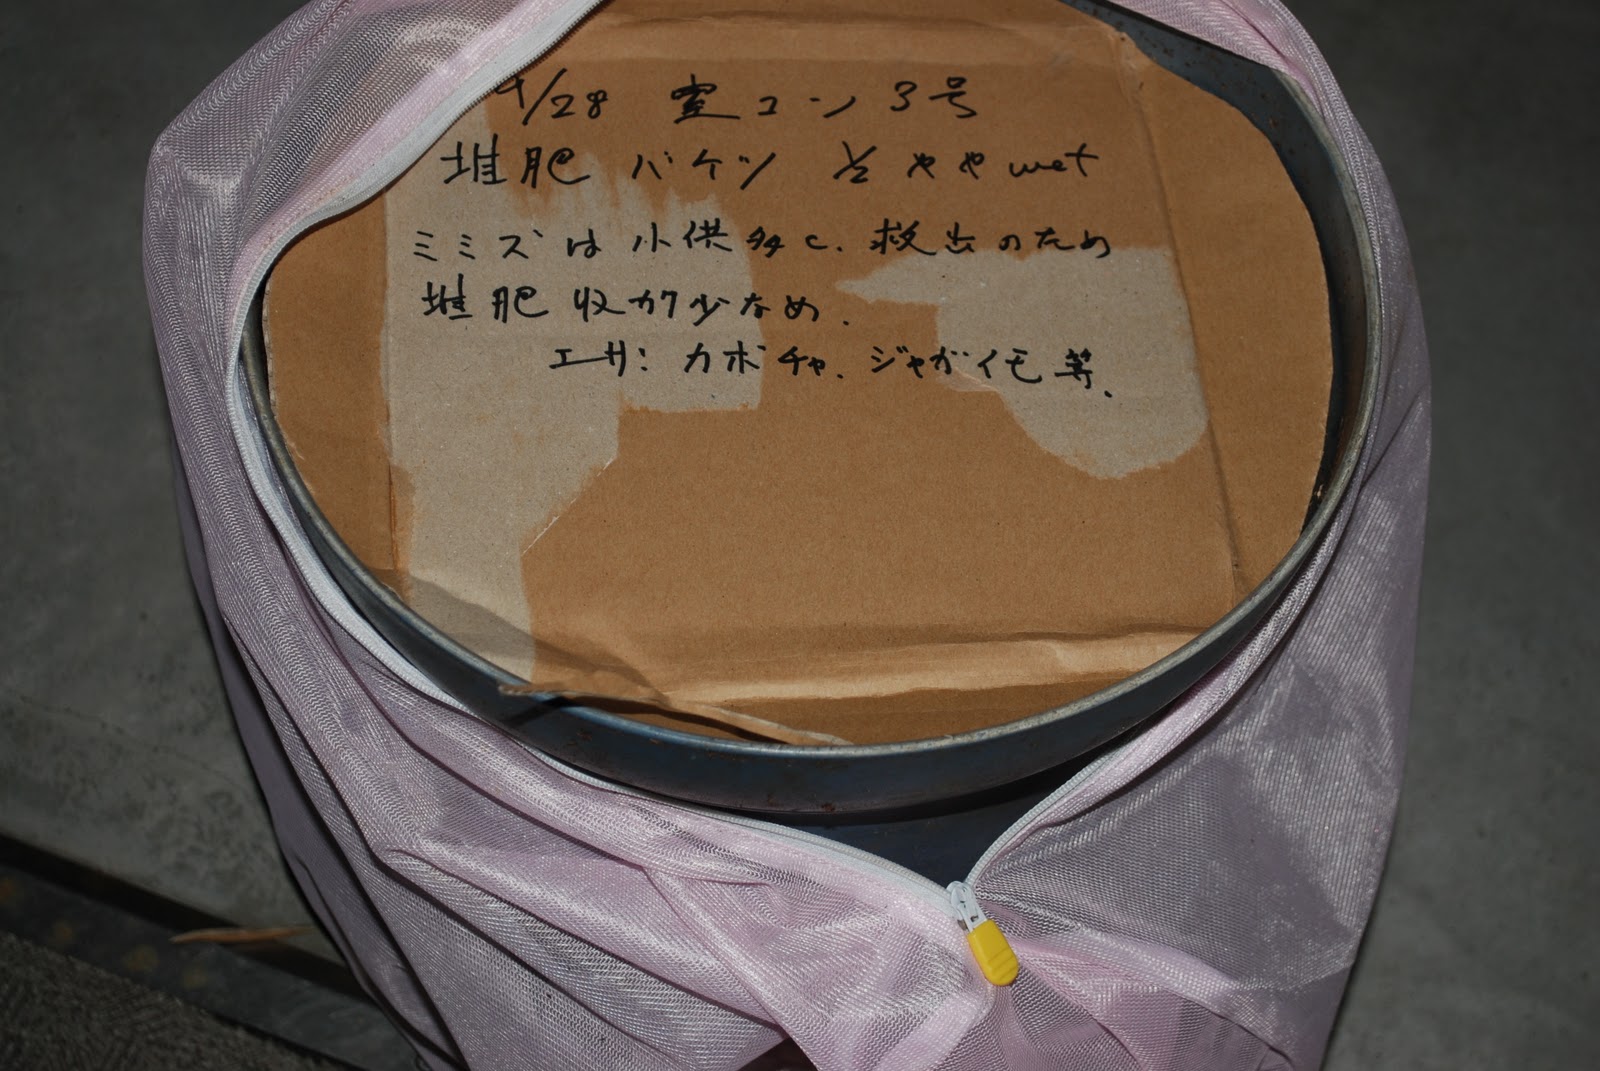 9/28 室コン3号
堆肥バケツ 1/2 やや wet
ミミズは小供多く、救出のため
堆肥収カク少なめ.
エサ: カボチャ、ジャガイモ等.